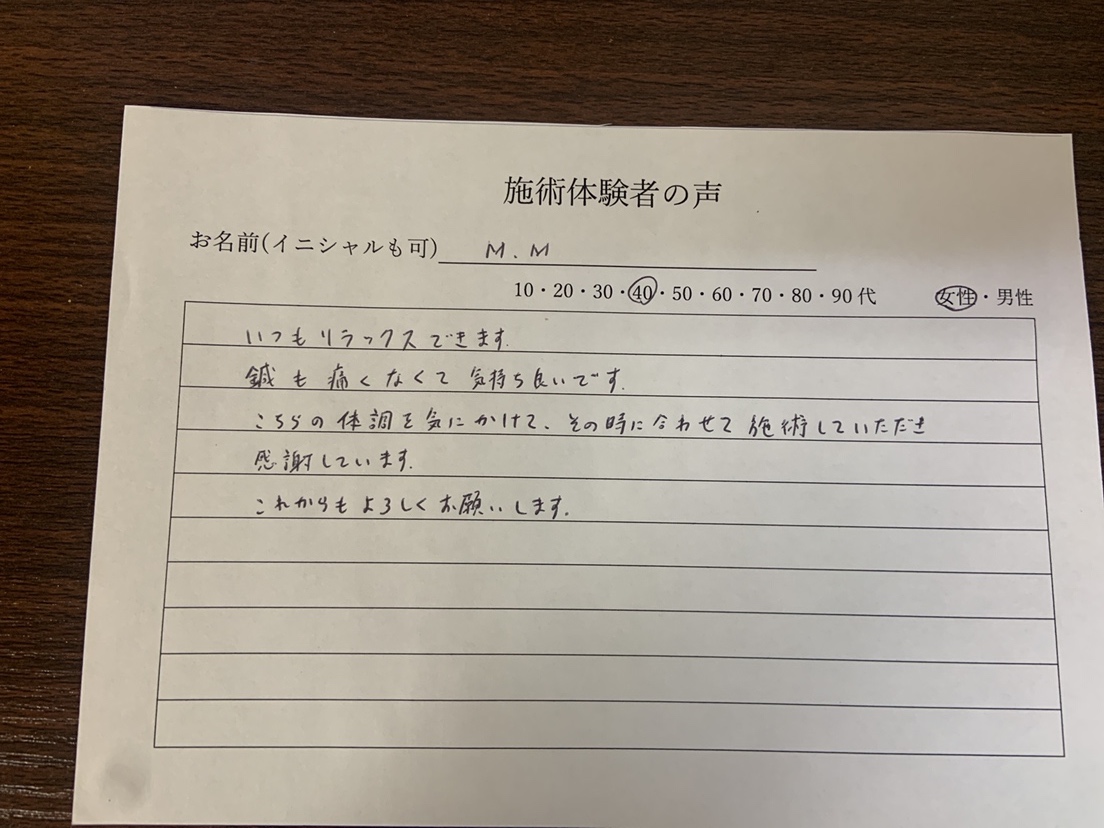 施術体験者の声
お名前(イニシャルも可) M.M
10・20・30・40・50・60・70・80・90代 女性・男性
いつもリラックスできます.
鍼も痛くなくて気持ち良いです.
こちらの体調を気にかけて、その時に合わせて施術していただき
感謝しています.
これからもよろしくお願いします.